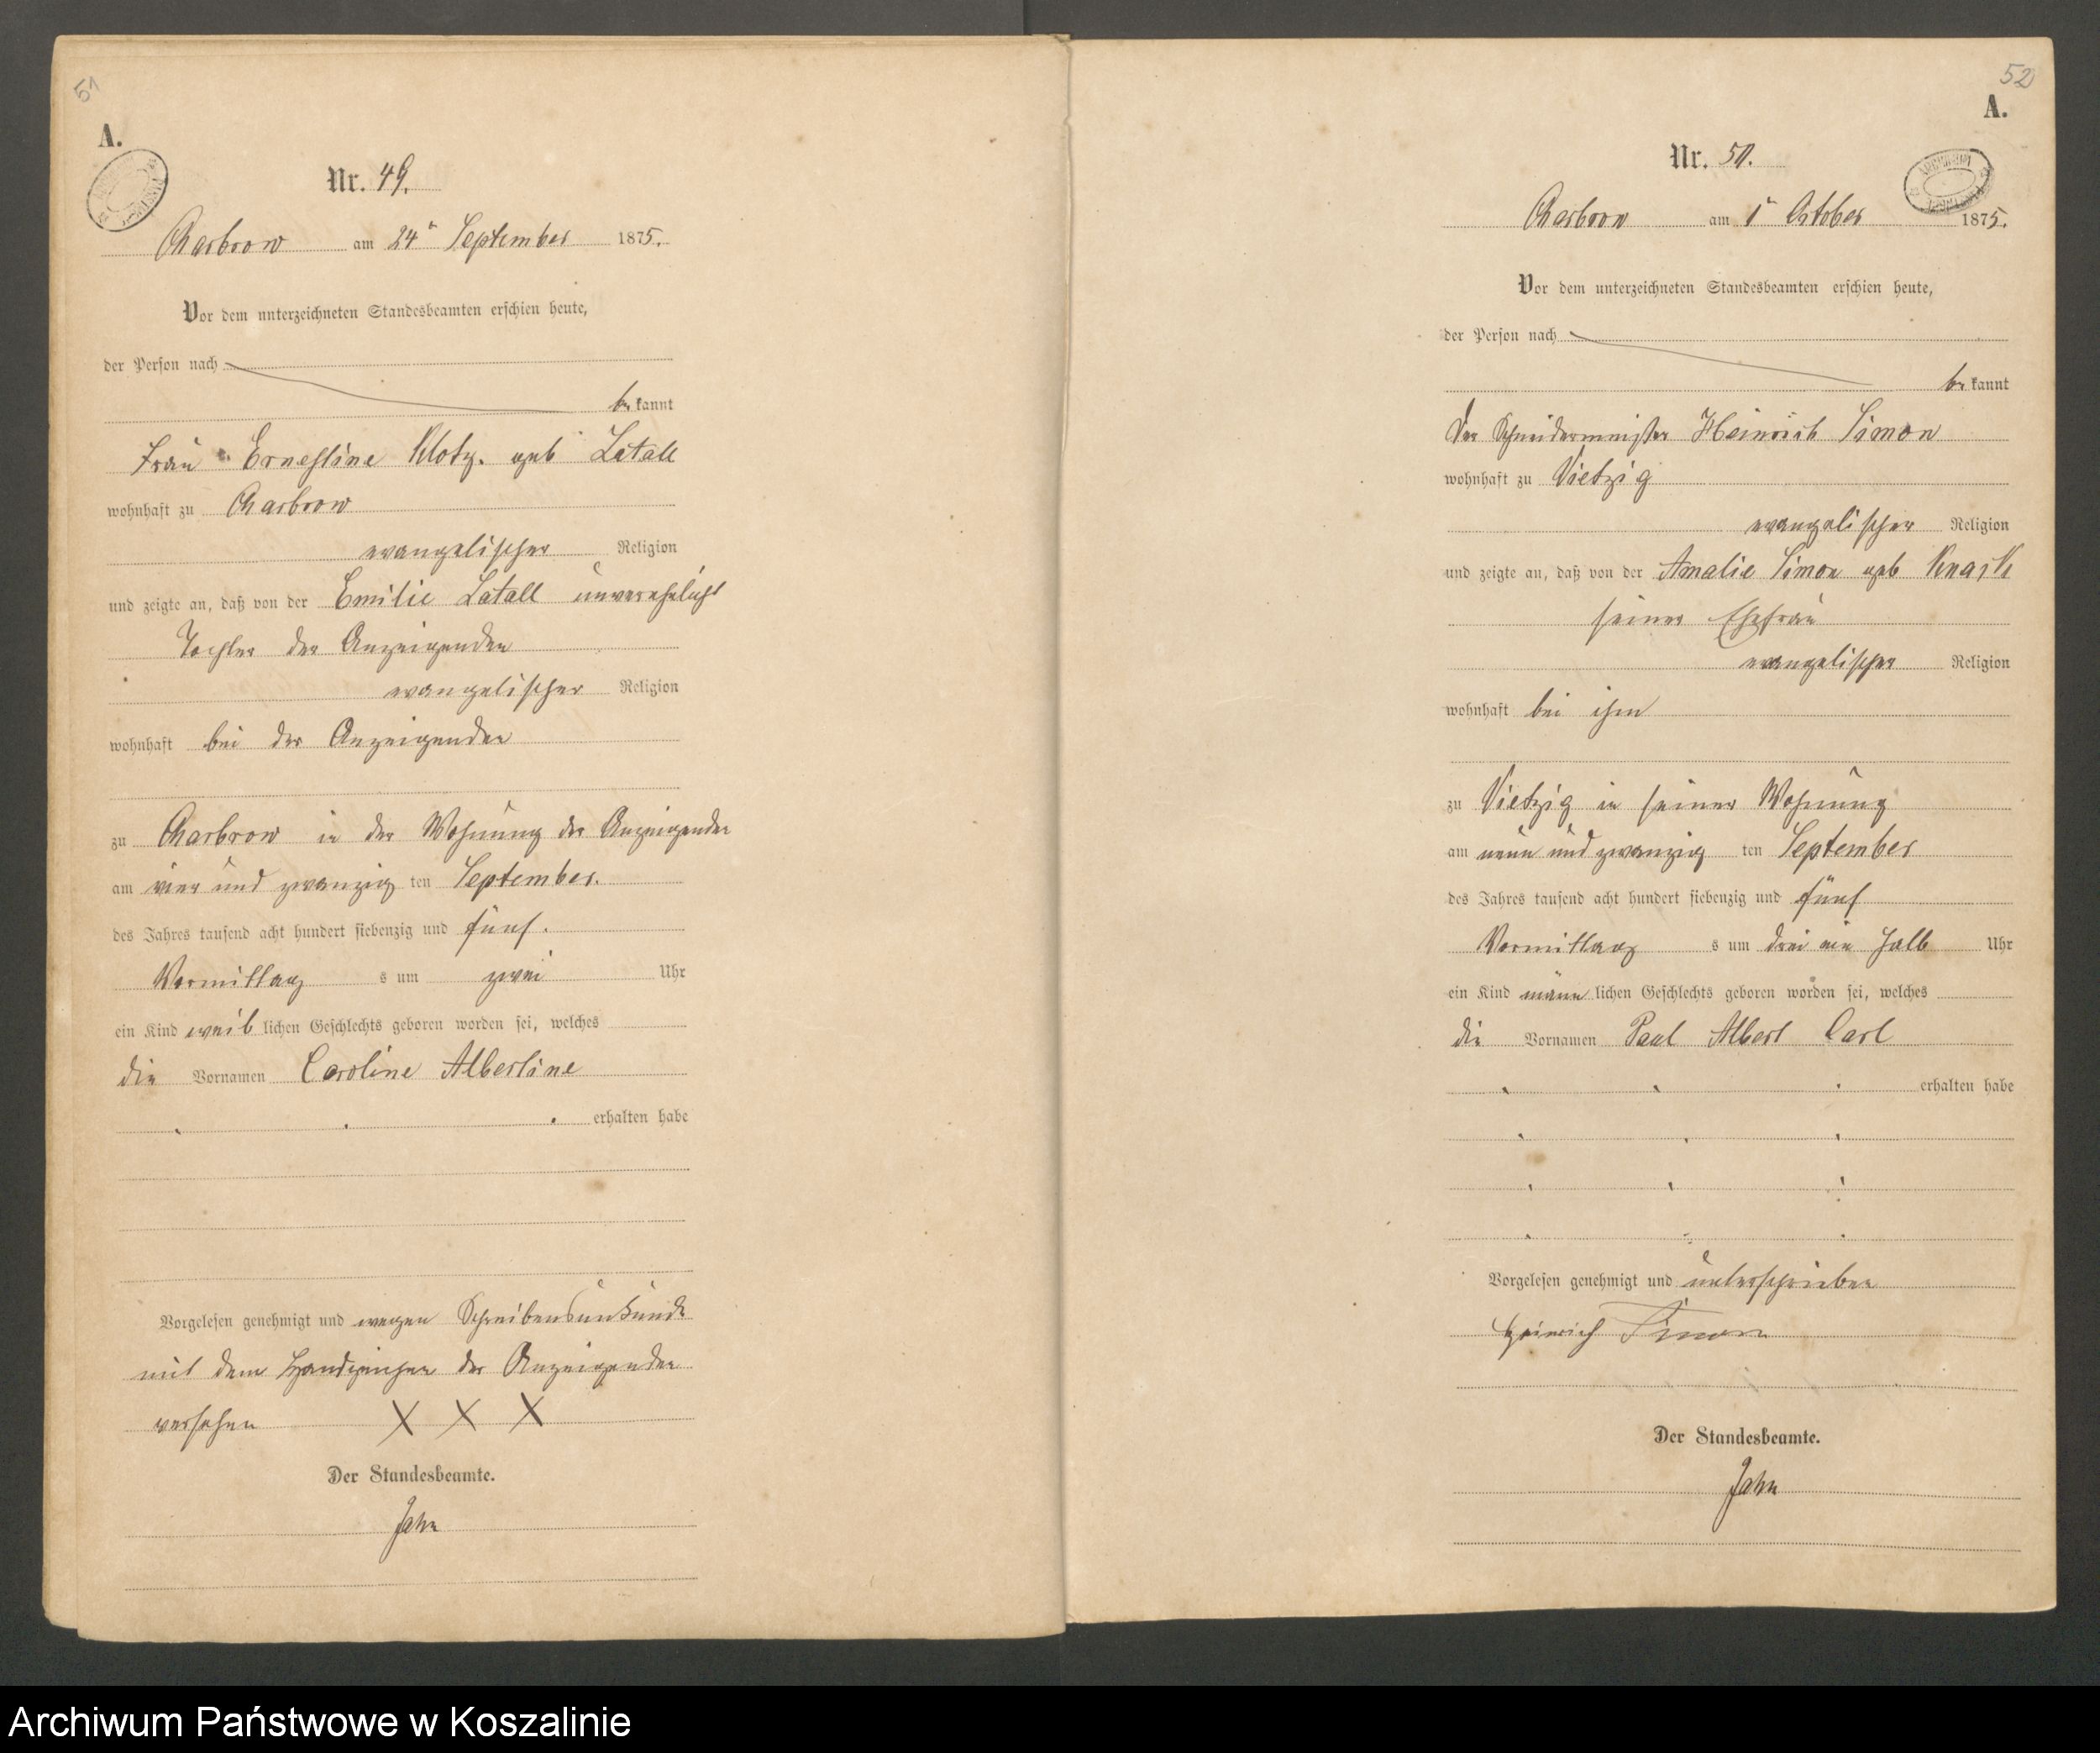 51
A.
Nr. 49.
Charbrow am 24ᵗ September 1875.
Vor dem unterzeichneten Standesbeamten erschien heute,
der Person nach
be kannt
Frau Ernestine Klotz. geb Latall
wohnhaft zu Charbrow
evangelischer Religion
und zeigte an, daß von der Emilie Latall unverehelicht
Tochter der Anzeigenden
evangelischer Religion
wohnhaft bei der Anzeigenden
zu Charbrow in der Wohnung der Anzeigenden
am vier und zwanzig ten September.
des Jahres tausend acht hundert siebenzig und fünf.
Vormittag s um zwei Uhr
ein Kind weib lichen Geschlechts geboren worden sei, welches
die Vornamen Caroline Albertine
erhalten habe
Vorgelesen genehmigt und wegen Schreibensunkunde
mit dem Handzeichen der Anzeigenden
versehen X X X
Der Standesbeamte.
Jahn
52
A.
Nr. 50.
ARCHIWUM
Charbrow am 1ᵗ October 1875.
Vor dem unterzeichneten Standesbeamten erschien heute,
der Person nach
be kannt
Der Schneidermeister Heinrich Simon
wohnhaft zu Vietzig
evangelischer Religion
und zeigte an, daß von der Amalie Simon geb
seiner Ehefrau
evangelischer Religion
wohnhaft bei ihm
zu Vietzig in seiner Wohnung
am neun und zwanzig ten September
des Jahres tausend acht hundert siebenzig und fünf
Vormittag s um drei ein halb Uhr
ein Kind männ lichen Geschlechts geboren worden sei, welches
die Vornamen Paul Albert Carl
erhalten habe
Vorgelesen genehmigt und unterschrieben
Heinrich Simon
Der Standesbeamte.
Jahn
Archiwum Państwowe w Koszalinie